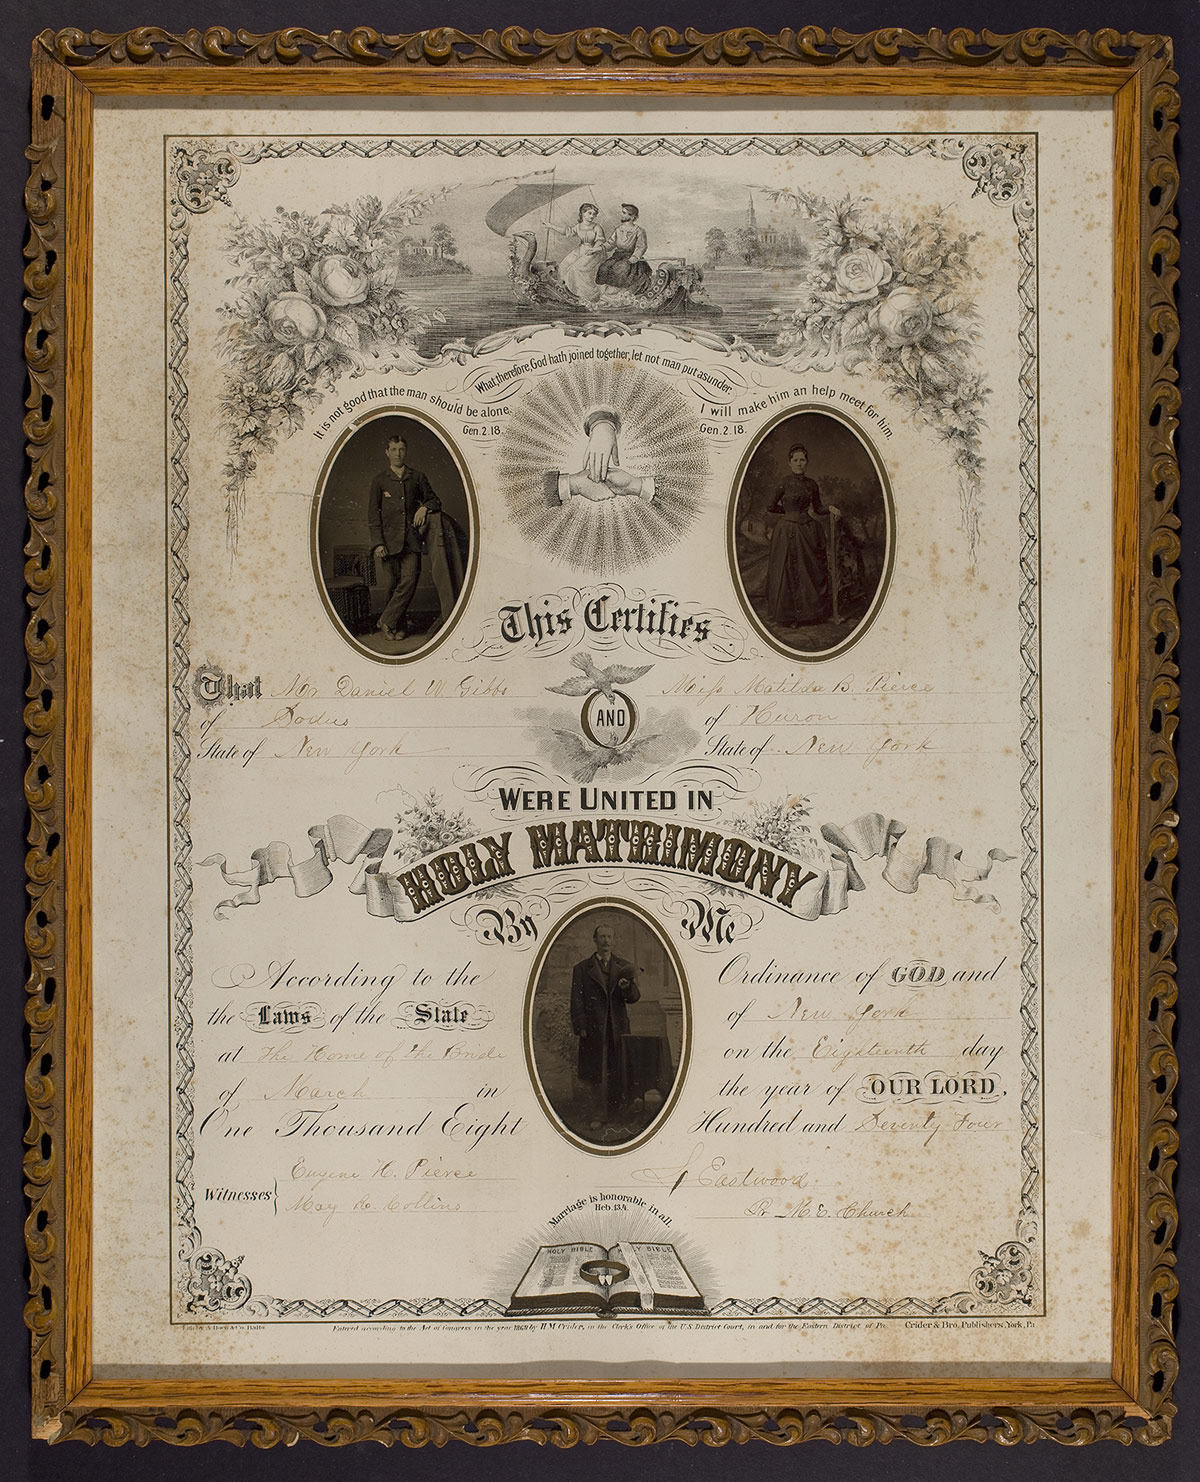 What, therefore, God hath joined together, let not man put asunder.
It is not good that the man should be alone.
Gen. 2. 18.
I will make him an help meet for him.
Gen. 2. 18.
This Certifies
That Mr Daniel W. Gibbs AND Miss Matilda B. Pierce
of Sodus of Huron
State of New York State of New York
WERE UNITED IN
HOLY MATRIMONY
By Me
According to the Ordinance of GOD and
the Laws of the State of New York
at The Home of the Bride on the Eighteenth day
of March in the year of OUR LORD,
One Thousand Eight Hundred and Seventy Four
Witnesses
Eugene H. Pierce
May Collins
Eastwood
M. E. Church
Marriage is honorable in all.
Heb. 13.4.
HOLY BIBLE HOLY BIBLE
Entered according to the Act of Congress in the year 1868 by H M Crider, in the Clerk's Office of the U.S. District Court, in and for the Eastern District of Pa.
Crider & Bro. Publishers, York, Pa